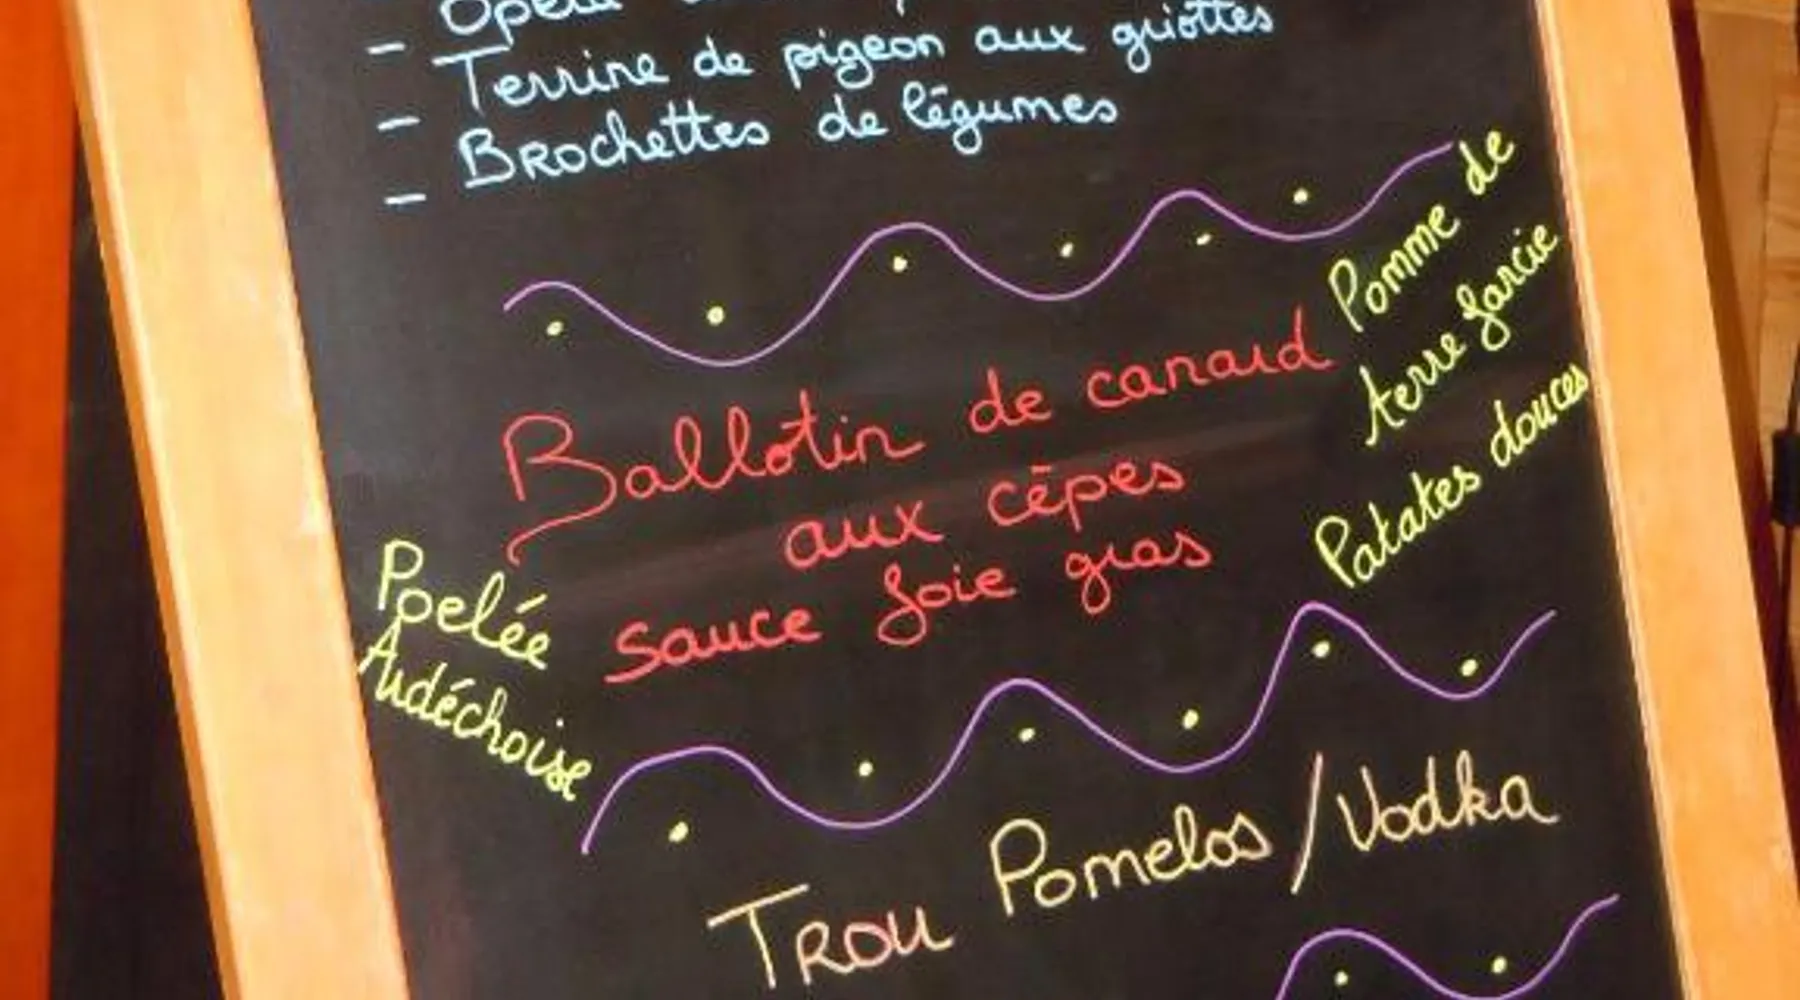 - Opéra
- Terrine de pigeon aux griottes
- Brochettes de légumes
-
Ballotin de canard
aux cèpes
sauce foie gras
Pomme de
terre farcie
Patates douces
Poelée
Ardéchoise
Trou Pomelos / Vodka